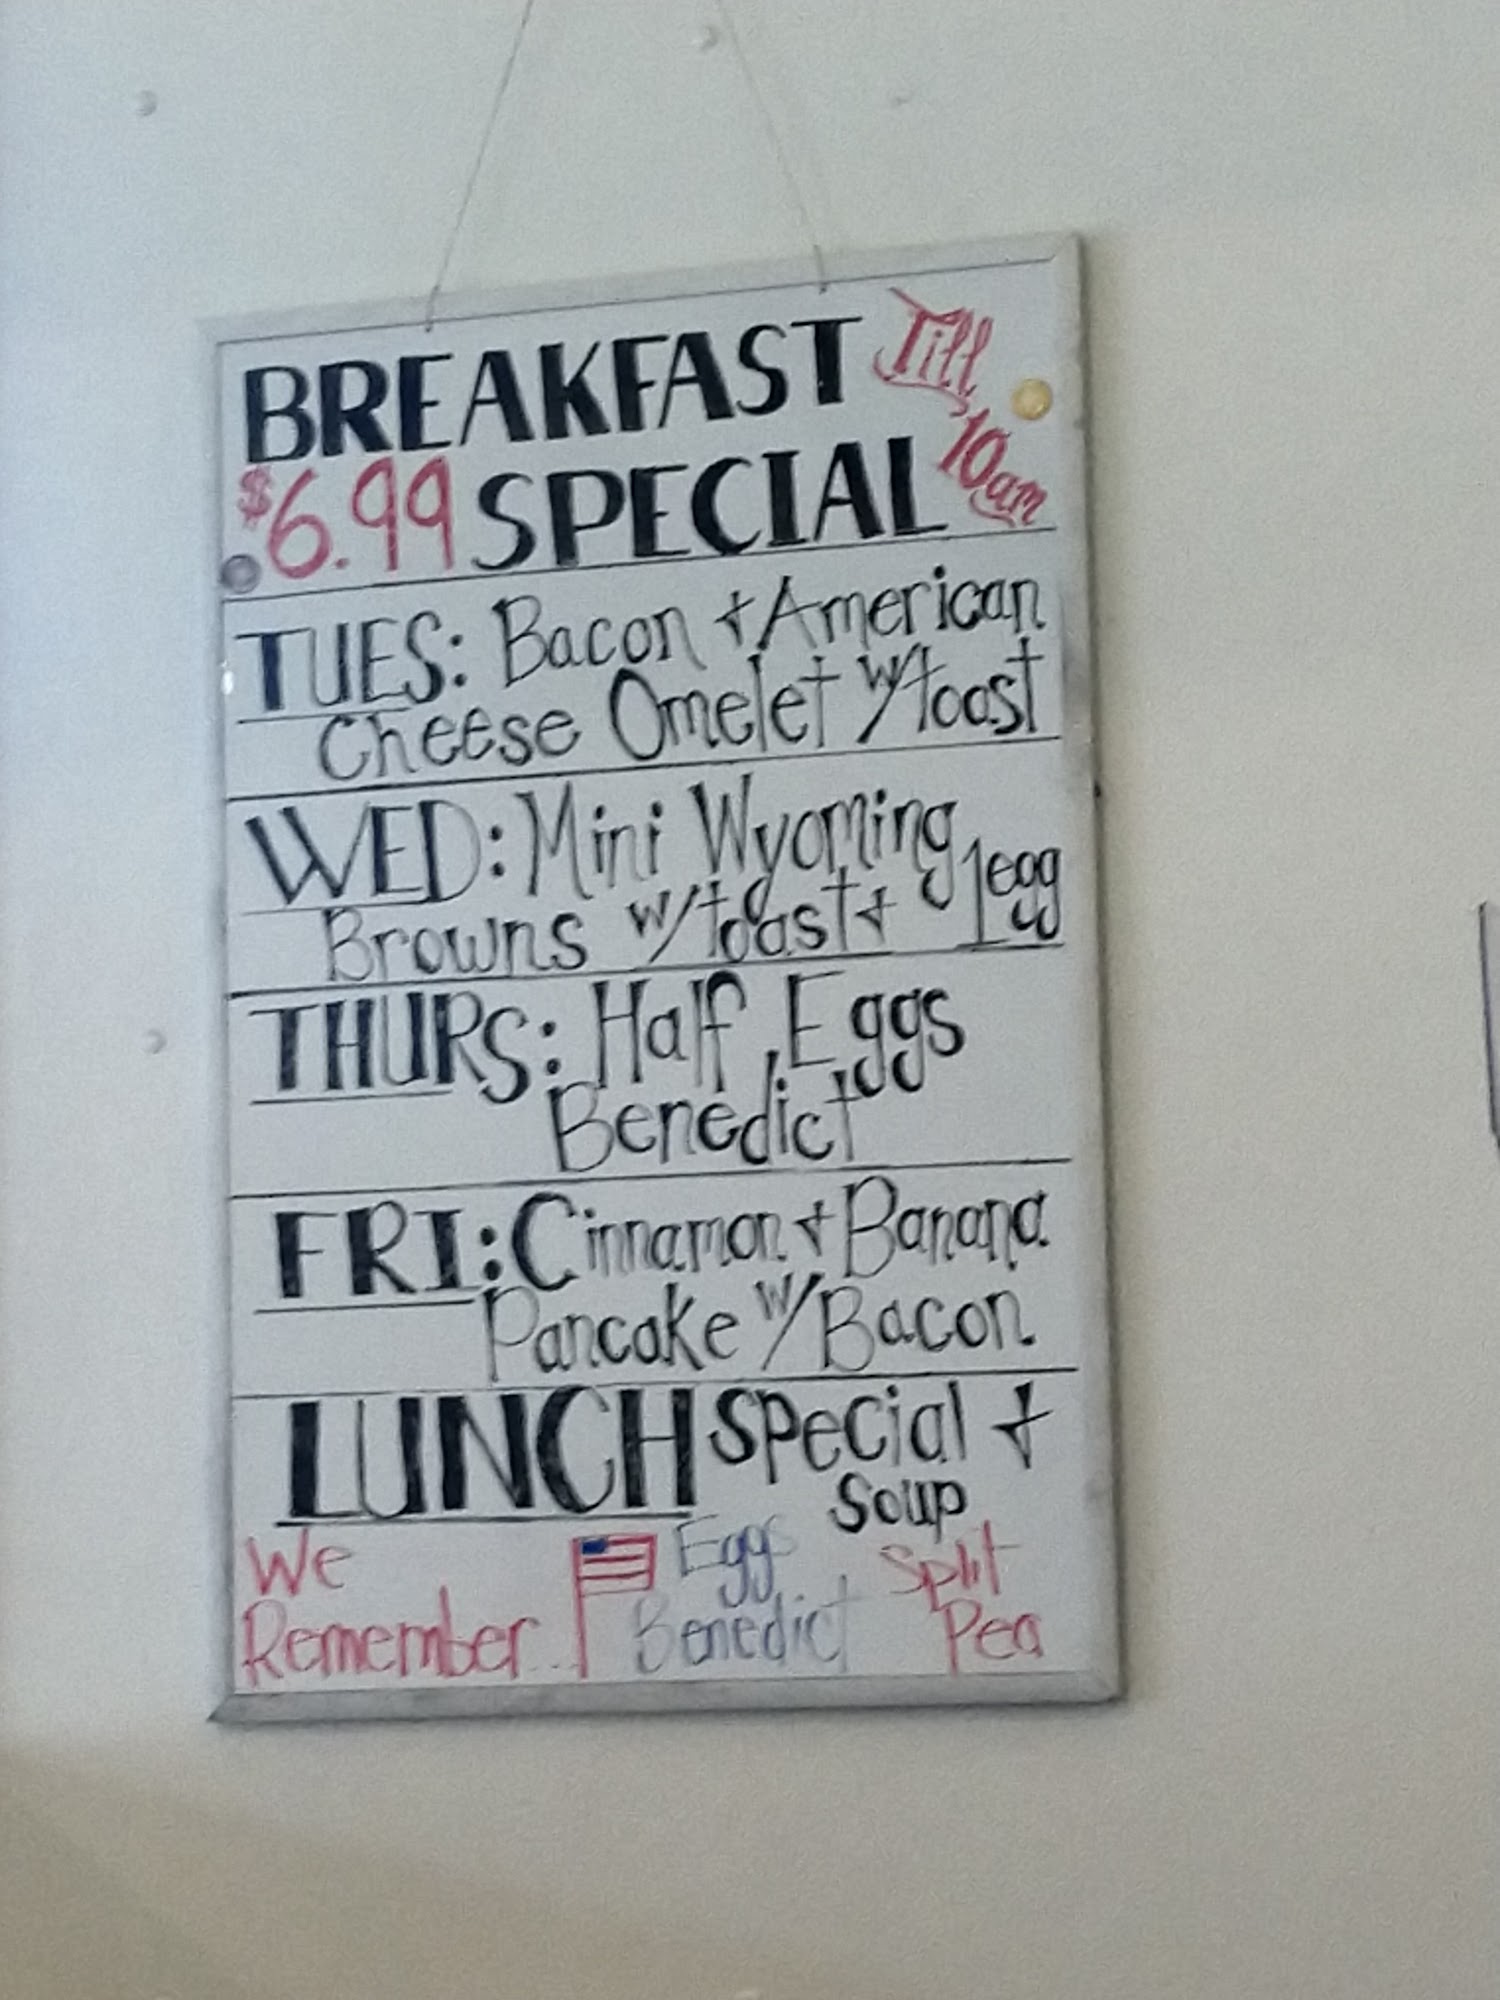 BREAKFAST Till
$6.99 SPECIAL 10am
TUES: Bacon + American
Cheese Omelet w/toast
WED: Mini Wyoming
Browns w/toast + 1egg
THURS: Half Eggs
Benedict
FRI: Cinnamon + Banana
Pancake w/Bacon
LUNCH Special +
Soup
We Eggs Split
Remember... Benedict Pea